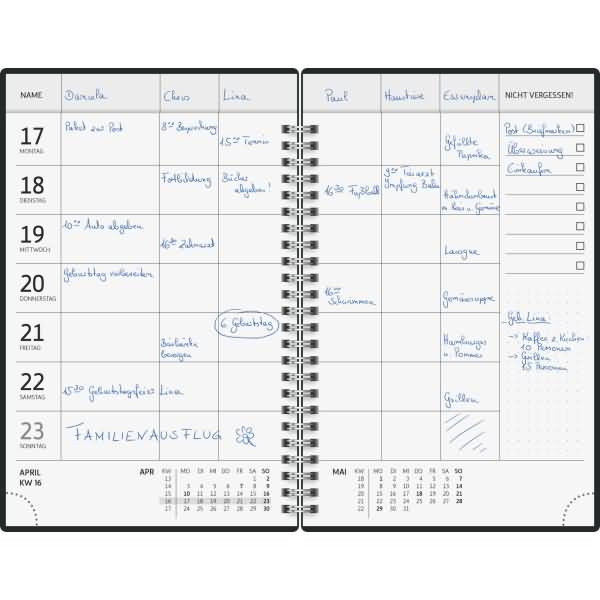 NAME Daniela Chris Lina Paul Haustiere Essensplan NICHT VERGESSEN!
17 MONTAG
Paket zur Post
8°° Besprechung
15°° Tennis
Gefüllte
Paprika
Post (Briefmarken)
Überweisung
Einkaufen
18 DIENSTAG
Fortbildung
Bücher
abgeben!
16³⁰ Fußball
9°° Tierarzt
Impfung Balu
Hähnchenbrust
m. Reis u. Gemüse
19 MITTWOCH
10³⁰ Auto abgeben
16⁴⁵ Zahnarzt
Lasagne
20 DONNERSTAG
Geburtstag vorbereiten
16°°
Schwimmen
Gemüsesuppe
21 FREITAG
Getränke
besorgen
6. Geburtstag
Hamburger
u. Pommes
Geb. Lina:
→ Kaffee & Kuchen:
10 Personen
→ Grillen
15 Personen
22 SAMSTAG
15³⁰ Geburtstagsfeier Lina
Grillen
23 SONNTAG
FAMILIENAUSFLUG
APRIL
KW 16
APR KW MO DI MI DO FR SA SO
13 1 2
14 3 4 5 6 7 8 9
15 10 11 12 13 14 15 16
16 17 18 19 20 21 22 23
17 24 25 26 27 28 29 30
MAI KW MO DI MI DO FR SA SO
18 1 2 3 4 5 6 7
19 8 9 10 11 12 13 14
20 15 16 17 18 19 20 21
21 22 23 24 25 26 27 28
22 29 30 31